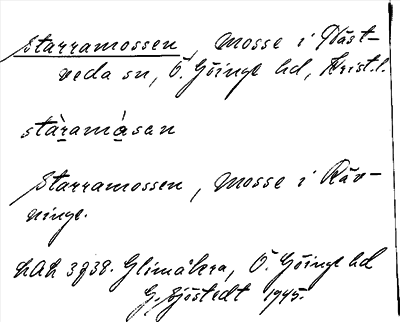 Starramossen, mosse i Näst-
veda sn, Ö. Göinge hd, Krist.l.
stàramåsan
Starramossen, mosse i Räv-
ninge.
LAL 3938. Glimåkra, Ö. Göinge hd
G. Sjöstedt 1945.